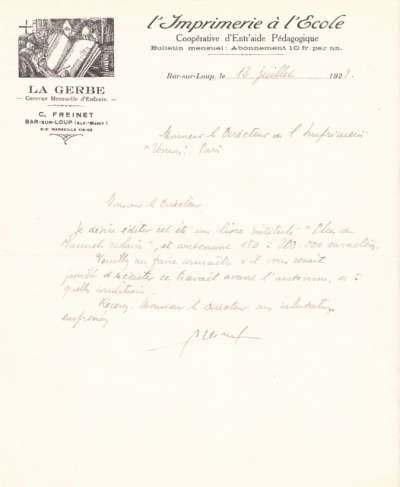 l'Imprimerie à l'Ecole
Coopérative d'Entr'aide Pédagogique
Bulletin mensuel : Abonnement 10 fr. par an.
LA GERBE
C. FREINET
BAR-SUR-LOUP (ALP.-MARIT.)
C.C. MARSEILLE 115.03
Bar-sur-Loup, le 12 juillet 192
Monsieur le Directeur de l'Imprimerie
"Union" Paris
Monsieur le Directeur
Je désire éditer cet été un livre intitulé "Plus de
Manuels scolaires", et contenant 180 à 200.000 caractères
Veuillez me faire connaître s'il vous serait
possible d'exécuter ce travail avant l'automne, et à
quelles conditions.
Recevez, Monsieur le Directeur, mes salutations
empressées